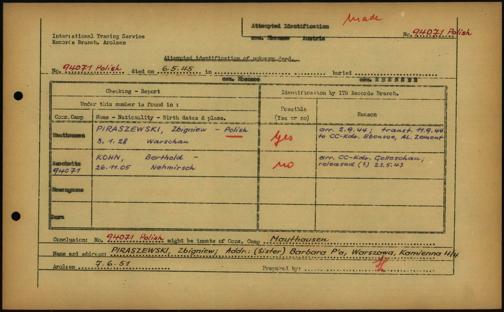 made
International Tracing Service
Records Branch, Arolsen
Attempted Identification
con. Ebensee Austria
No. 94071 Polish
Attempted identification of unknown dead.
No. 94071 Polish died on 6.5.45 in con. Ebensee buried con. Ebensee
Checking - Report
Identification by ITS Records Branch.
Under this number is found in :
Possible (Yes or no)
Reason
Conc. Camp
Name - Nationality - Birth dates & place.
Mauthausen
PIRASZEWSKI, Zbigniew - Polish
8.1.28 Warschau
Yes
arr. 2.9.44; transf. 11.9.44
to CC-Kdo. Ebensee, AL. Zement
Auschwitz
94071
KOHN, Berthold -
26.11.05
no
arr. CC-Kdo. Golleschau;
released (?) 23.5.43
Conclusion: No. 94071 Polish might be inmate of Conc. Camp Mauthausen
Name and address: PIRASZEWSKI, Zbigniew; Addr: (Sister) Barbara P'a, Warszawa, Kamienna 4/4
Arolsen 7.6.51 Prepared by: